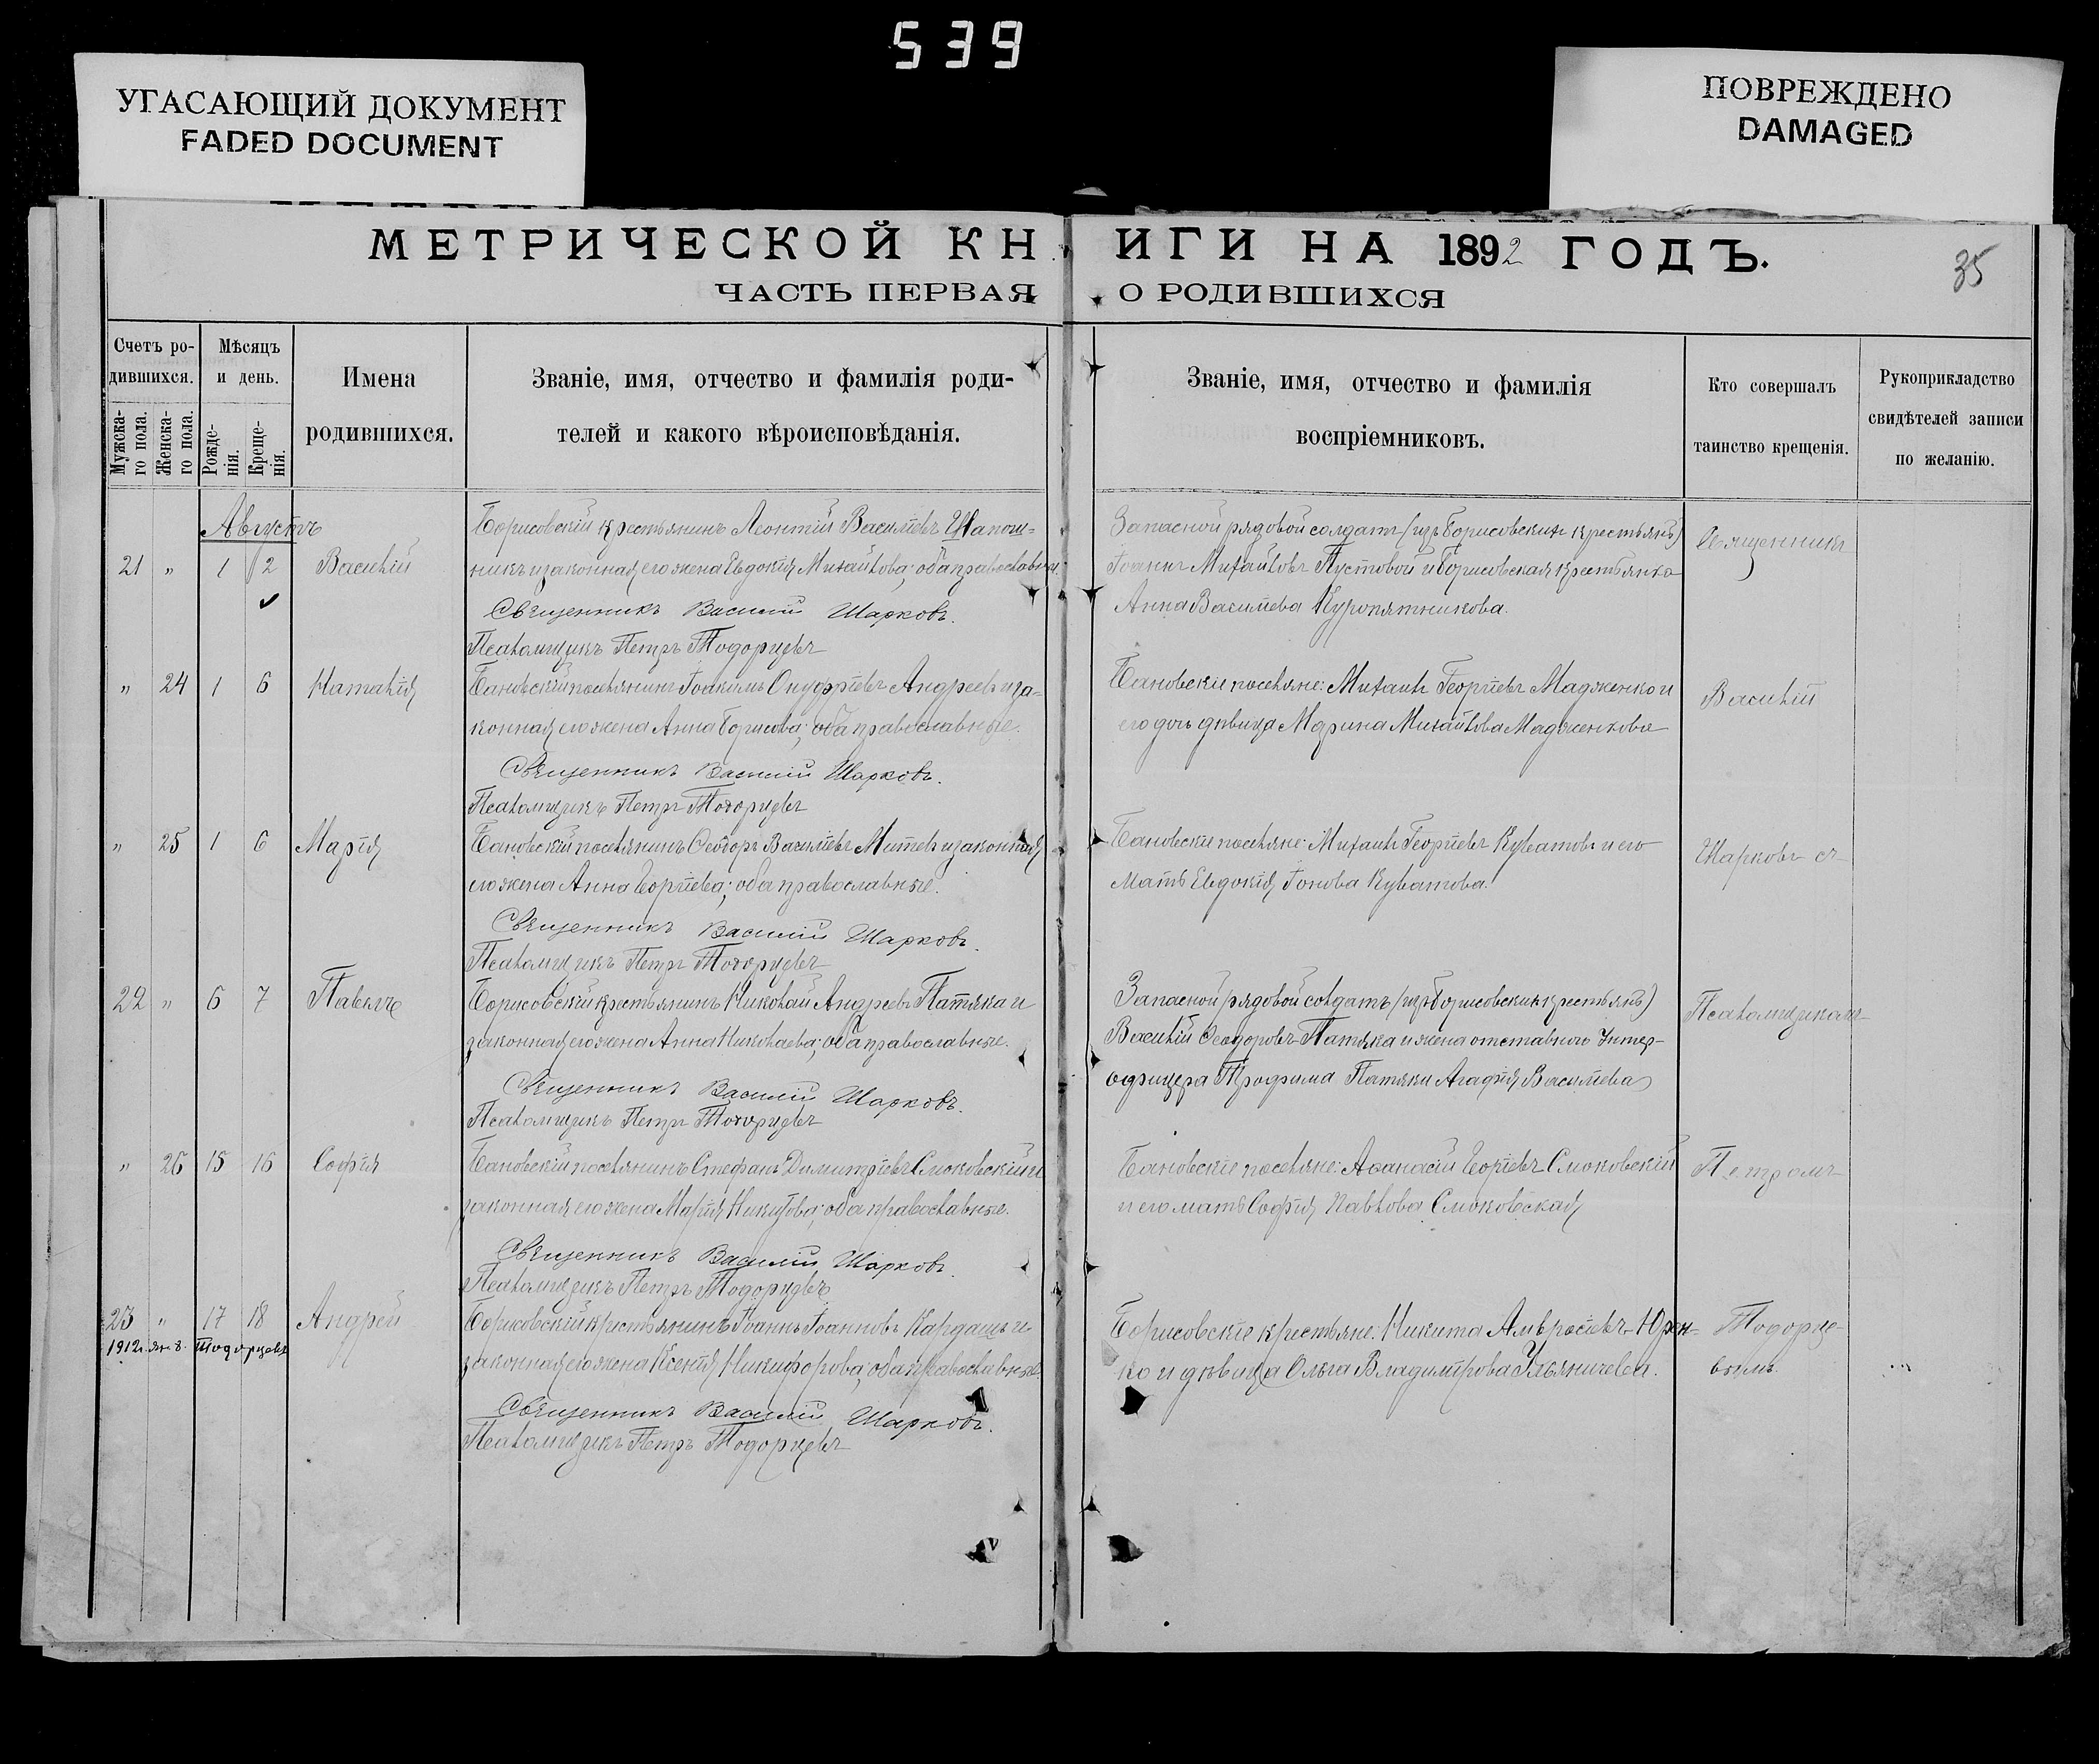 539
УГАСАЮЩИЙ ДОКУМЕНТ
FADED DOCUMENT
ПОВРЕЖДЕНО
DAMAGED
МЕТРИЧЕСКОЙ КНИГИ НА 1892 ГОДЪ.
35
ЧАСТЬ ПЕРВАЯ О РОДИВШИХСЯ
Счетъ ро-
дившихся.
Мужска-
го пола.
Женска-
го пола.
Мѣсяцъ
и день.
Рожде-
нія.
Креще-
нія.
Имена
родившихся.
Званіе, имя, отчество и фамилія роди-
телей и какого вѣроисповѣданія.
Званіе, имя, отчество и фамилія
воспріемниковъ.
Кто совершалъ
таинство крещенія.
Рукоприкладство
свидѣтелей записи
по желанію.
Августъ
21 " 1 2 Василій
Борисовскій крестьянинъ Леонтій Васильевъ Шапош-
никъ и законная его жена Евдокія Михайлова; оба православные.
Священникъ Василій Шарковъ.
Псаломщикъ Петръ Тодорцевъ
Запасной рядовой солдатъ (изъ борисовскихъ крестьянъ)
Іоаннъ Михайловъ Пустовой и борисовская крестьянка
Анна Васильева Куропятникова.
Священникъ
" 24 1 6 Наталія
Бановскій поселянинъ Іоакимъ Онуфріевъ Андреевъ и за-
конная его жена Анна Борисова; оба православные.
Священникъ Василій Шарковъ.
Псаломщикъ Петръ Тодорцевъ
Бановскіе поселяне: Михаилъ Георгіевъ Мадженко и
его дочь дѣвица Марина Михайлова Мадженкова
Василій
" 25 1 6 Марія
Бановскій поселянинъ Ѳеодоръ Васильевъ Митевъ и законная
его жена Анна Георгіева; оба православные.
Священникъ Василій Шарковъ.
Псаломщикъ Петръ Тодорцевъ
Бановскіе поселяне: Михаилъ Георгіевъ и его
мать Евдокія
Шарковъ съ
22 " 6 7 Павелъ
Борисовскій крестьянинъ Николай Андреевъ Патяка и
законная его жена Анна Николаева; оба православные.
Священникъ Василій Шарковъ.
Псаломщикъ Петръ Тодорцевъ
Запасной рядовой солдатъ (изъ борисовскихъ крестьянъ)
Василій Ѳеодоровъ Патяка и жена отставного Унтер-
офицера Трофима Патяки Агафія Васильева
Псаломщикомъ
" 26 15 16 Софія
Бановскій поселянинъ Стефанъ Димитріевъ Смоковскій и
законная его жена Марія Никитова; оба православные.
Священникъ Василій Шарковъ.
Псаломщикъ Петръ Тодорцевъ
Бановскіе поселяне: Аѳанасій Георгіевъ Смоковскій
и его мать Софія Павлова Смоковская
Петромъ
23 " 17 18 Андрей
1912 г. Тодорцевъ
Борисовскій крестьянинъ Іоаннъ Іоанновъ Кардашъ и
законная его жена Ксенія Никифорова; оба православные.
Священникъ Василій Шарковъ.
Псаломщикъ Петръ Тодорцевъ
Борисовскіе крестьяне: Никита Амвросіевъ Юрен-
ко и дѣвица Ольга Владимірова Ульяничева.
Тодорце-
вымъ.